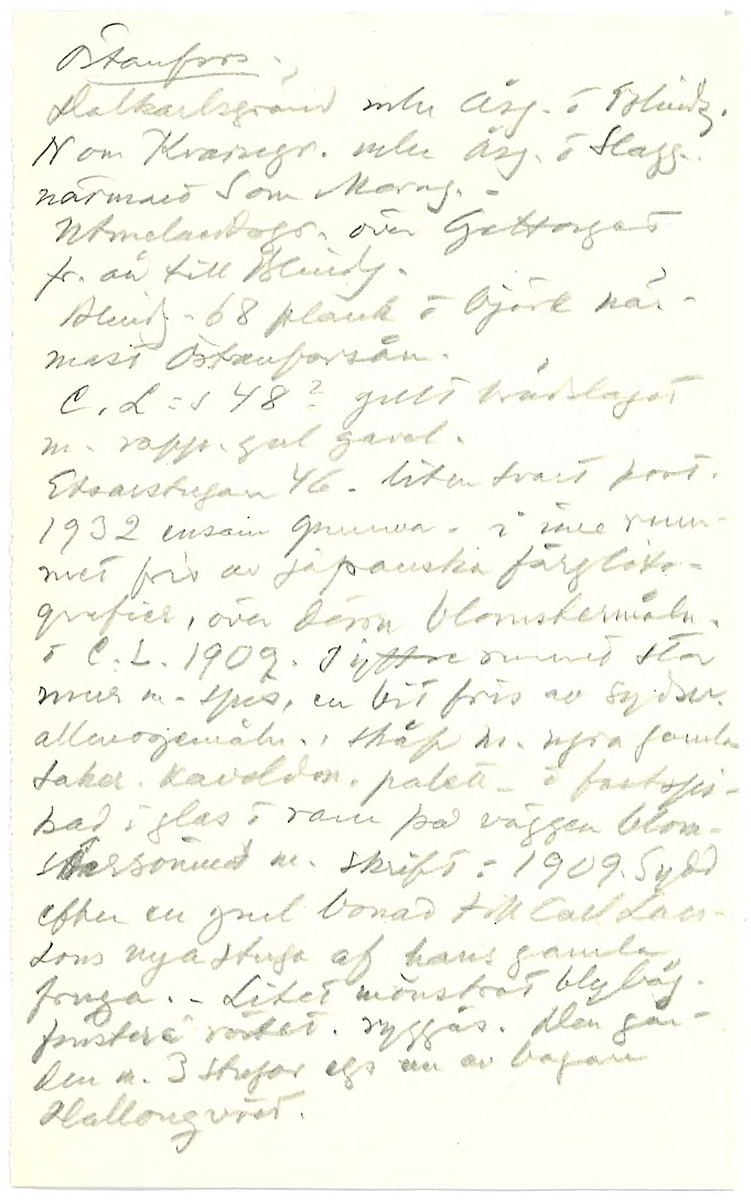 Östanfors.
Dalkarlsgränd mln Åsg. o Blindg.
N om Kvarngr. mln Åsg. o Slagg.
närmast S om Morag. -
över Gettorget
fr. ån till Blindg.
Blindg. 68 plank o björk när-
mast Östanforsån.
C. L:s 48? gult brädslaget
m. rapp. gul gavel.
46. liten svart port.
1932 ensam gumma. i inre rum-
met fris av japanska färglito-
grafier, över dörrn blomstermåln.
o C. L. 1909. I yttre rummet stor
mur m. spis, en bit fris av sydsv.
allmogemåln., skåp m. ngra gamla
saker. kaveldon. palett o fastspi-
kad i glas o ram på väggen blom-
stersömmad m. skrift: 1909. Sydd
efter en gml bonad till Carl Lars-
sons nya stuga af hans gamla
fruga. - Litet mönstrat blybåg.
fönster i röstet. ryggås. Den går-
den m. 3 stugor egs nu av bagare
Hallongvist.